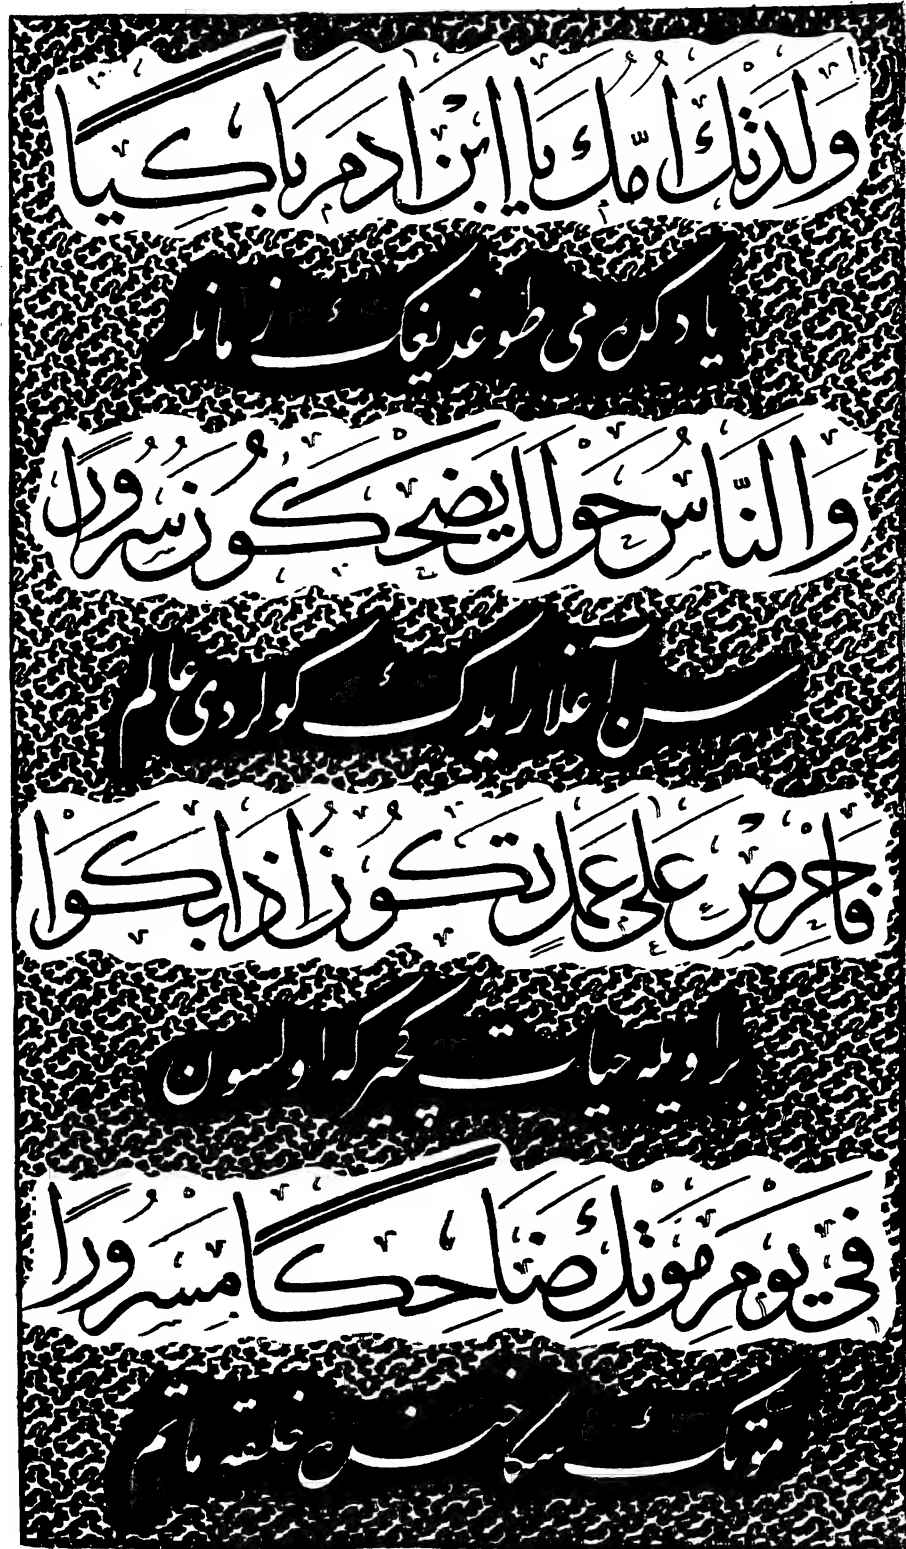 وَلَدَتْكَ اُمُّكَ يَا ابْنَ اٰدَمَ بَاكِيًا
یادكده می طوغدیغك زمانلر
وَالنَّاسُ حَوْلَكَ يَضْحَكُونَ سُرُورًا
سن آغلار ایدك كولردی عالم
فَاحْرِصْ عَلٰى عَمَلٍ تَكُونُ اِذَا بَكَوْا
بر اویله حیات كچیر كه اولسون
فِي يَوْمِ مَوْتِكَ ضَاحِكًا مَسْرُورًا
موتك سكا خنده خلقه ماتم